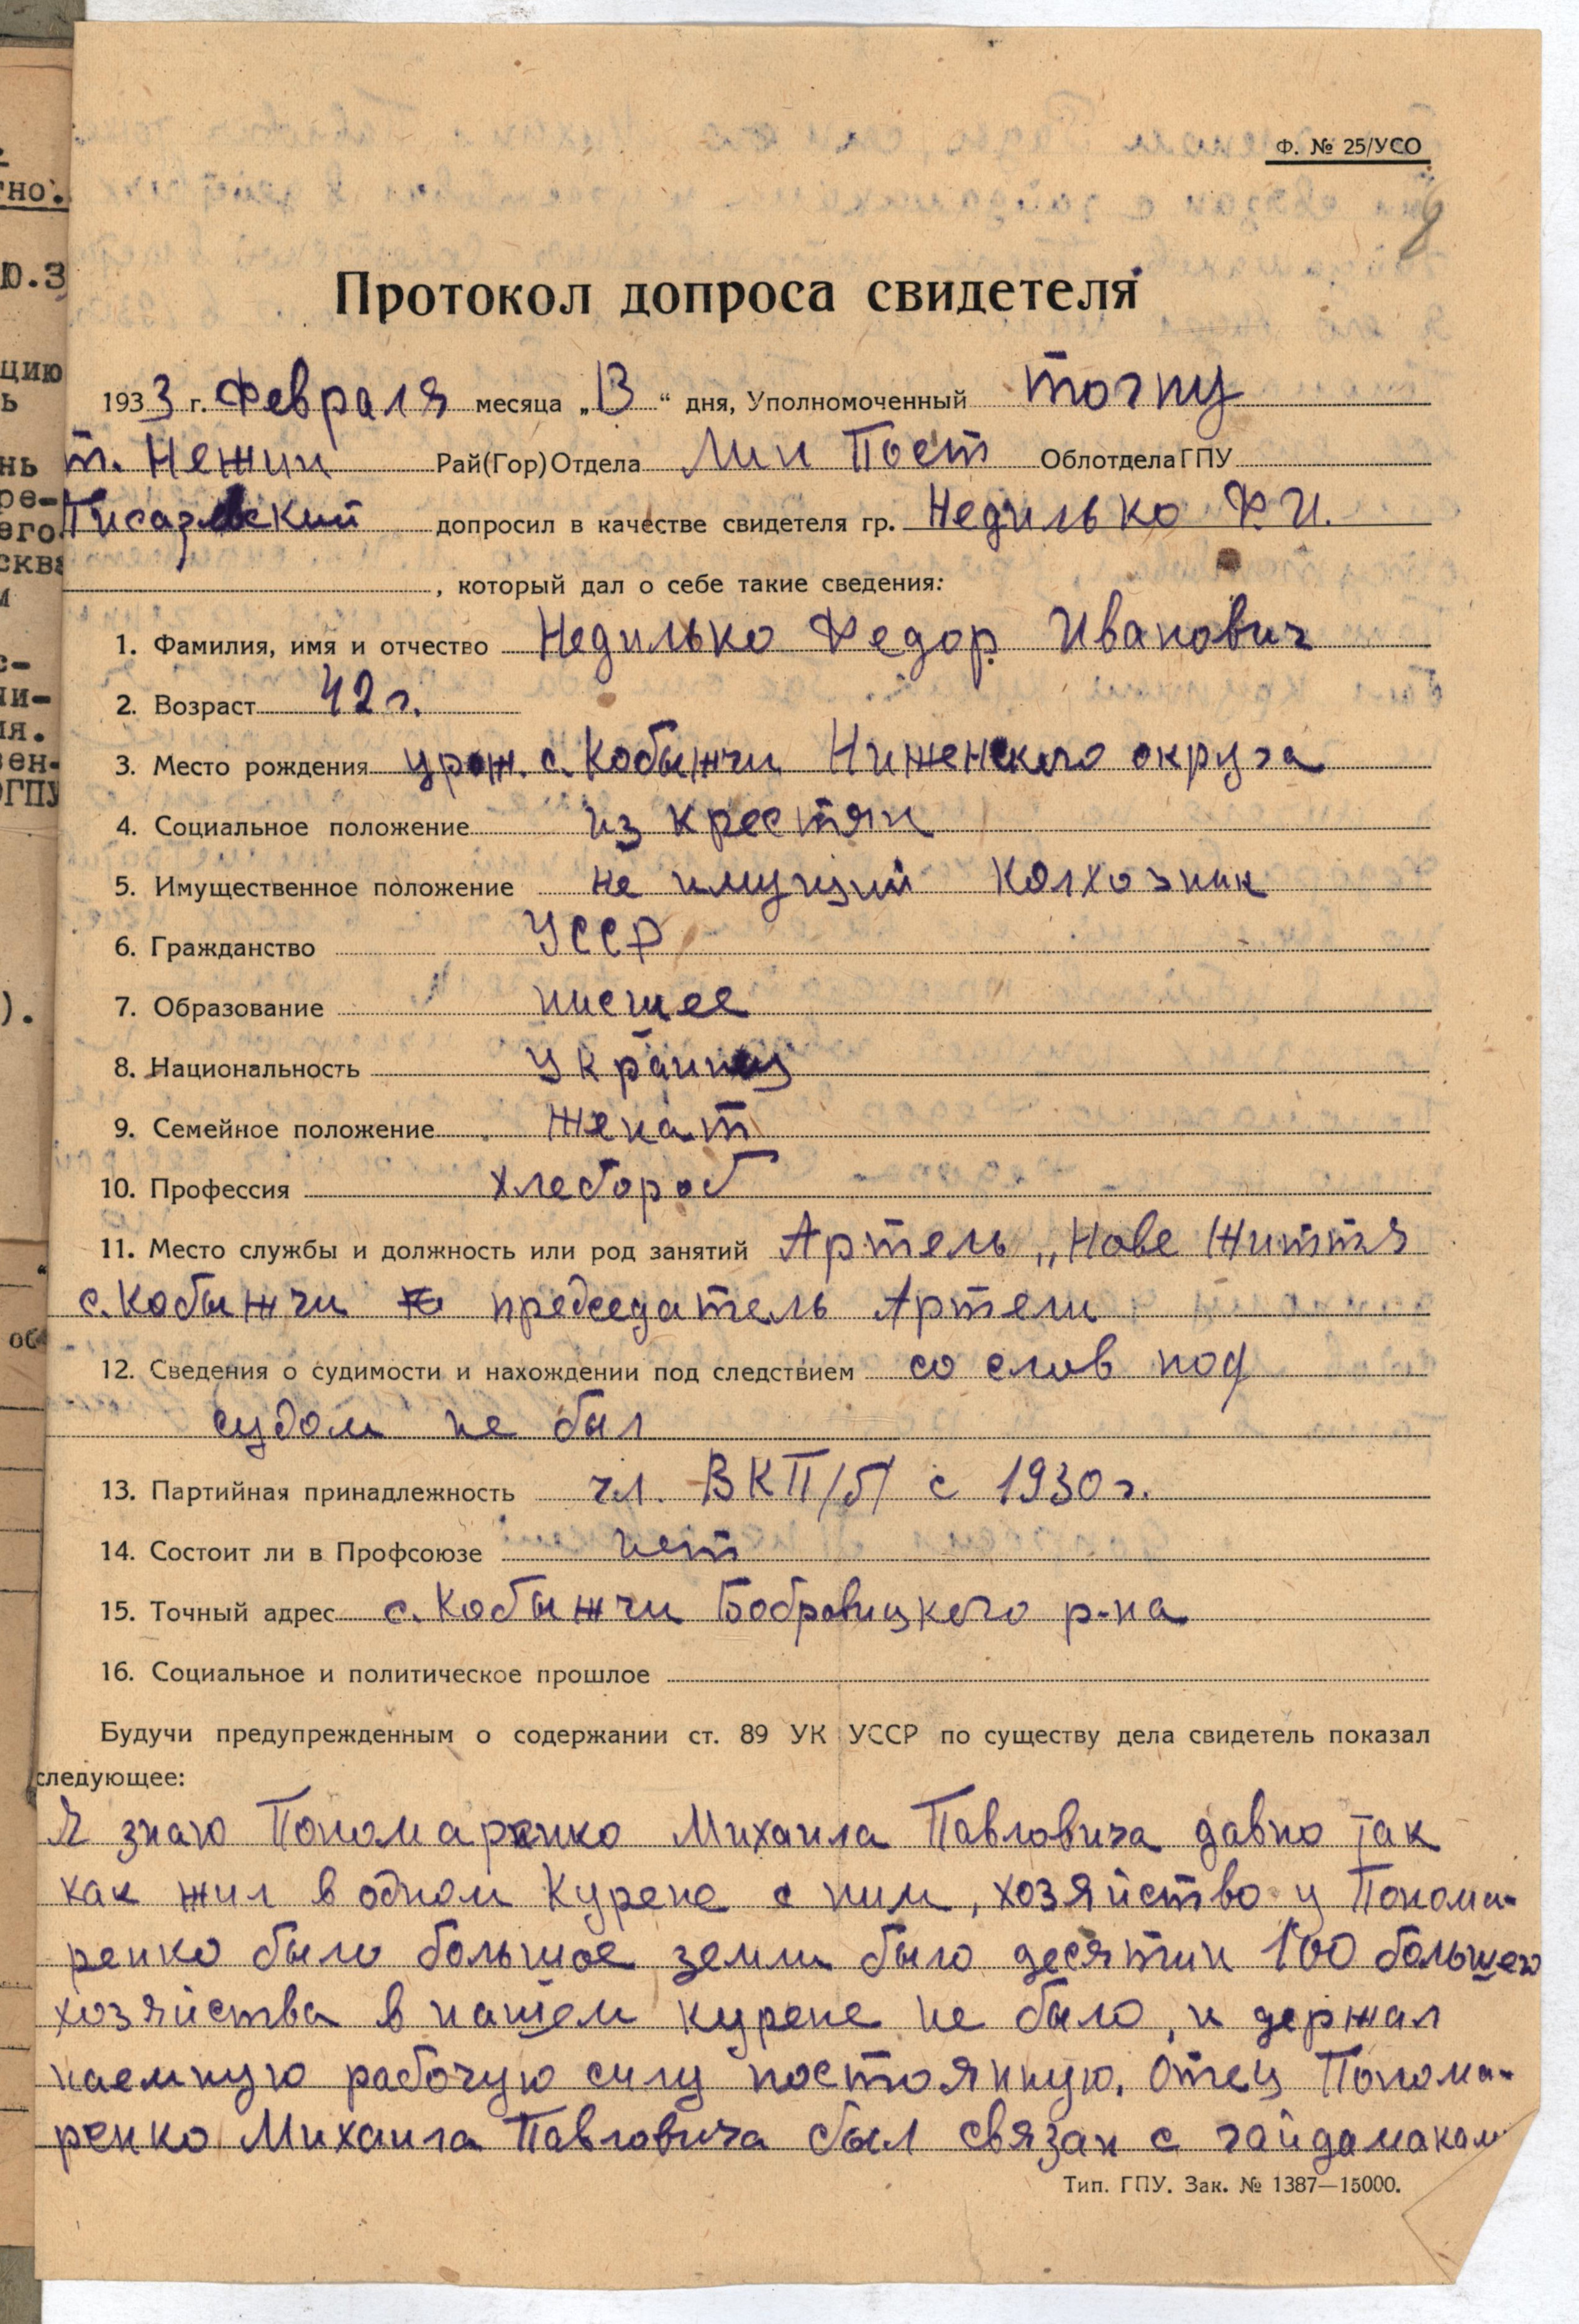 Ф. № 25/УСО
Протокол допроса свидетеля
1933 г. Февраля месяца „13“ дня, Уполномоченный ТОГПУ
т. Нежин Рай(Гор)Отдела Лин Пост Облотдела ГПУ
Писаревский допросил в качестве свидетеля гр. Недилько Ф. И.
, который дал о себе такие сведения:
1. Фамилия, имя и отчество Недилько Федор Иванович
2. Возраст 42 г.
3. Место рождения урож. с. Кобыжчи Ниженского округа
4. Социальное положение из крестян
5. Имущественное положение не имущий колхозник
6. Гражданство УССР
7. Образование нисшее
8. Национальность Украинец
9. Семейное положение женат
10. Профессия хлебороб
11. Место службы и должность или род занятий Артель „Нове Життя
с. Кобыжчи председатель Артели
12. Сведения о судимости и нахождении под следствием со слов под
судом не был
13. Партийная принадлежность чл. ВКП/б/ с 1930 г.
14. Состоит ли в Профсоюзе нет
15. Точный адрес с. Кобыжчи Бобровицкого р-на
16. Социальное и политическое прошлое
Будучи предупрежденным о содержании ст. 89 УК УССР по существу дела свидетель показал
следующее:
Я знаю Пономаренко Михаила Павловича давно так
как жил в одном Курене с ним, хозяйство у Понома-
ренко было большое земли было десятин 100 большего
хозяйства в нашем курене не было, и держал
наемную рабочую силу постоянную. Отец Понома-
ренко Михаила Павловича был связан с гайдамаками
Тип. ГПУ. Зак. № 1387—15000.
тно.
Ю.З
цию
ь
нь
ре-
его
сква
и
с-
ни-
ия.
вен-
ОГПУ
).
об